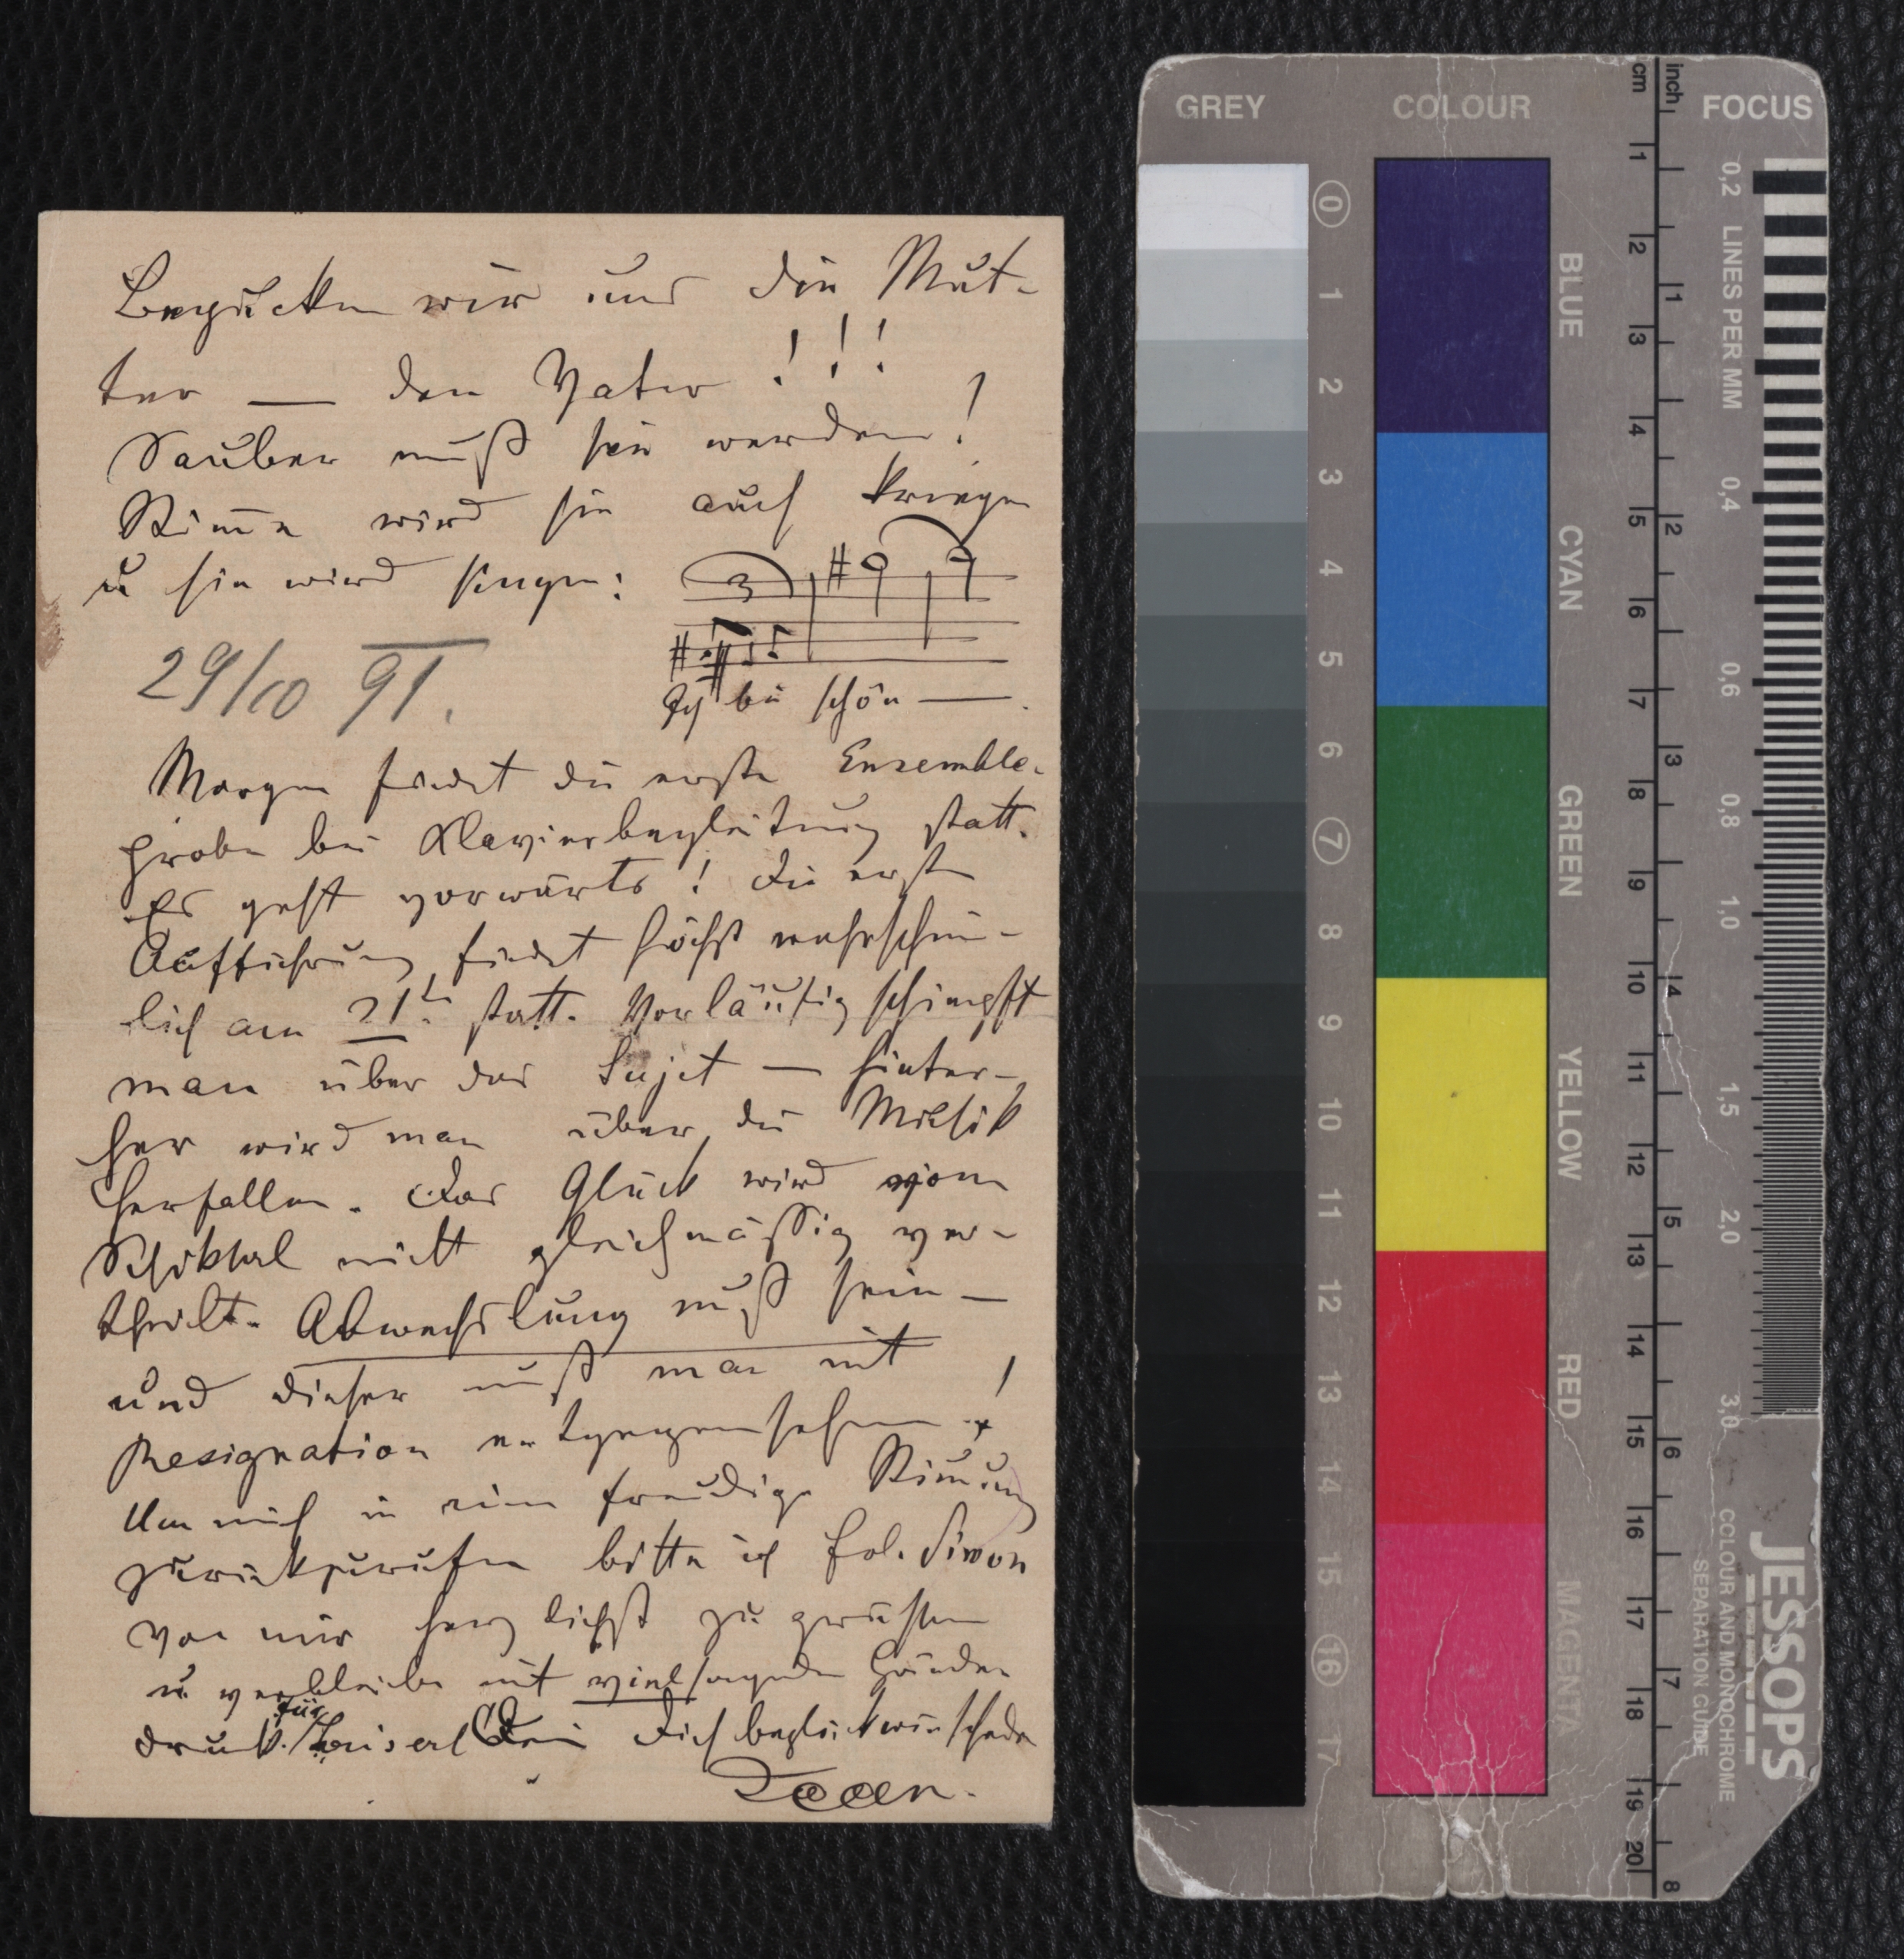 Begücken wir uns die Mut-
ter — den Vater !!!
Sauber muß sie werden!
Stim̄e wird sie auch kriegen
u sie wird singen:
3
Ich bin schön —
29/10 91.
Morgen findet die erste Ensemble-
probe bei Klavierbegleitung statt.
Es geht vorwärts! Die erste
Aufführung findet höchst wahrschein-
lich am 21t. statt. Vorläufig schimpft
man über das Sujet — hinter-
her wird man über die Musik
herfallen. Das Glück wird vom
Schiksal nicht gleichmässig ver-
theilt. Abwechslung muß sein —
und dieser muß man mit
Resignation entgegensehen!
Um mich in eine freudige Stim̄ung
zurückzurufen bitte ich Frl. Simon
von mir herzlichst zu grüßen
u verbleibe mit vielsagenden Hände
druck. / für Luiserl Dein Dich beglückwünschender
GREY
COLOUR
FOCUS
cm
inch
0 1 2 3 4 5 6 7 8 9 10 11 12 13 14 15 16 17
BLUE
CYAN
GREEN
YELLOW
RED
MAGENTA
1 2 3 4 5 6 7 8 9 10 11 12 13 14 15 16 17 18 19 20
1 2 3 4 5 6 7 8
0,2 LINES PER MM 0,4 0,6 0,8 1,0 1,5 2,0 3,0
JESSOPS
COLOUR AND MONOCHROME
SEPARATION GUIDE